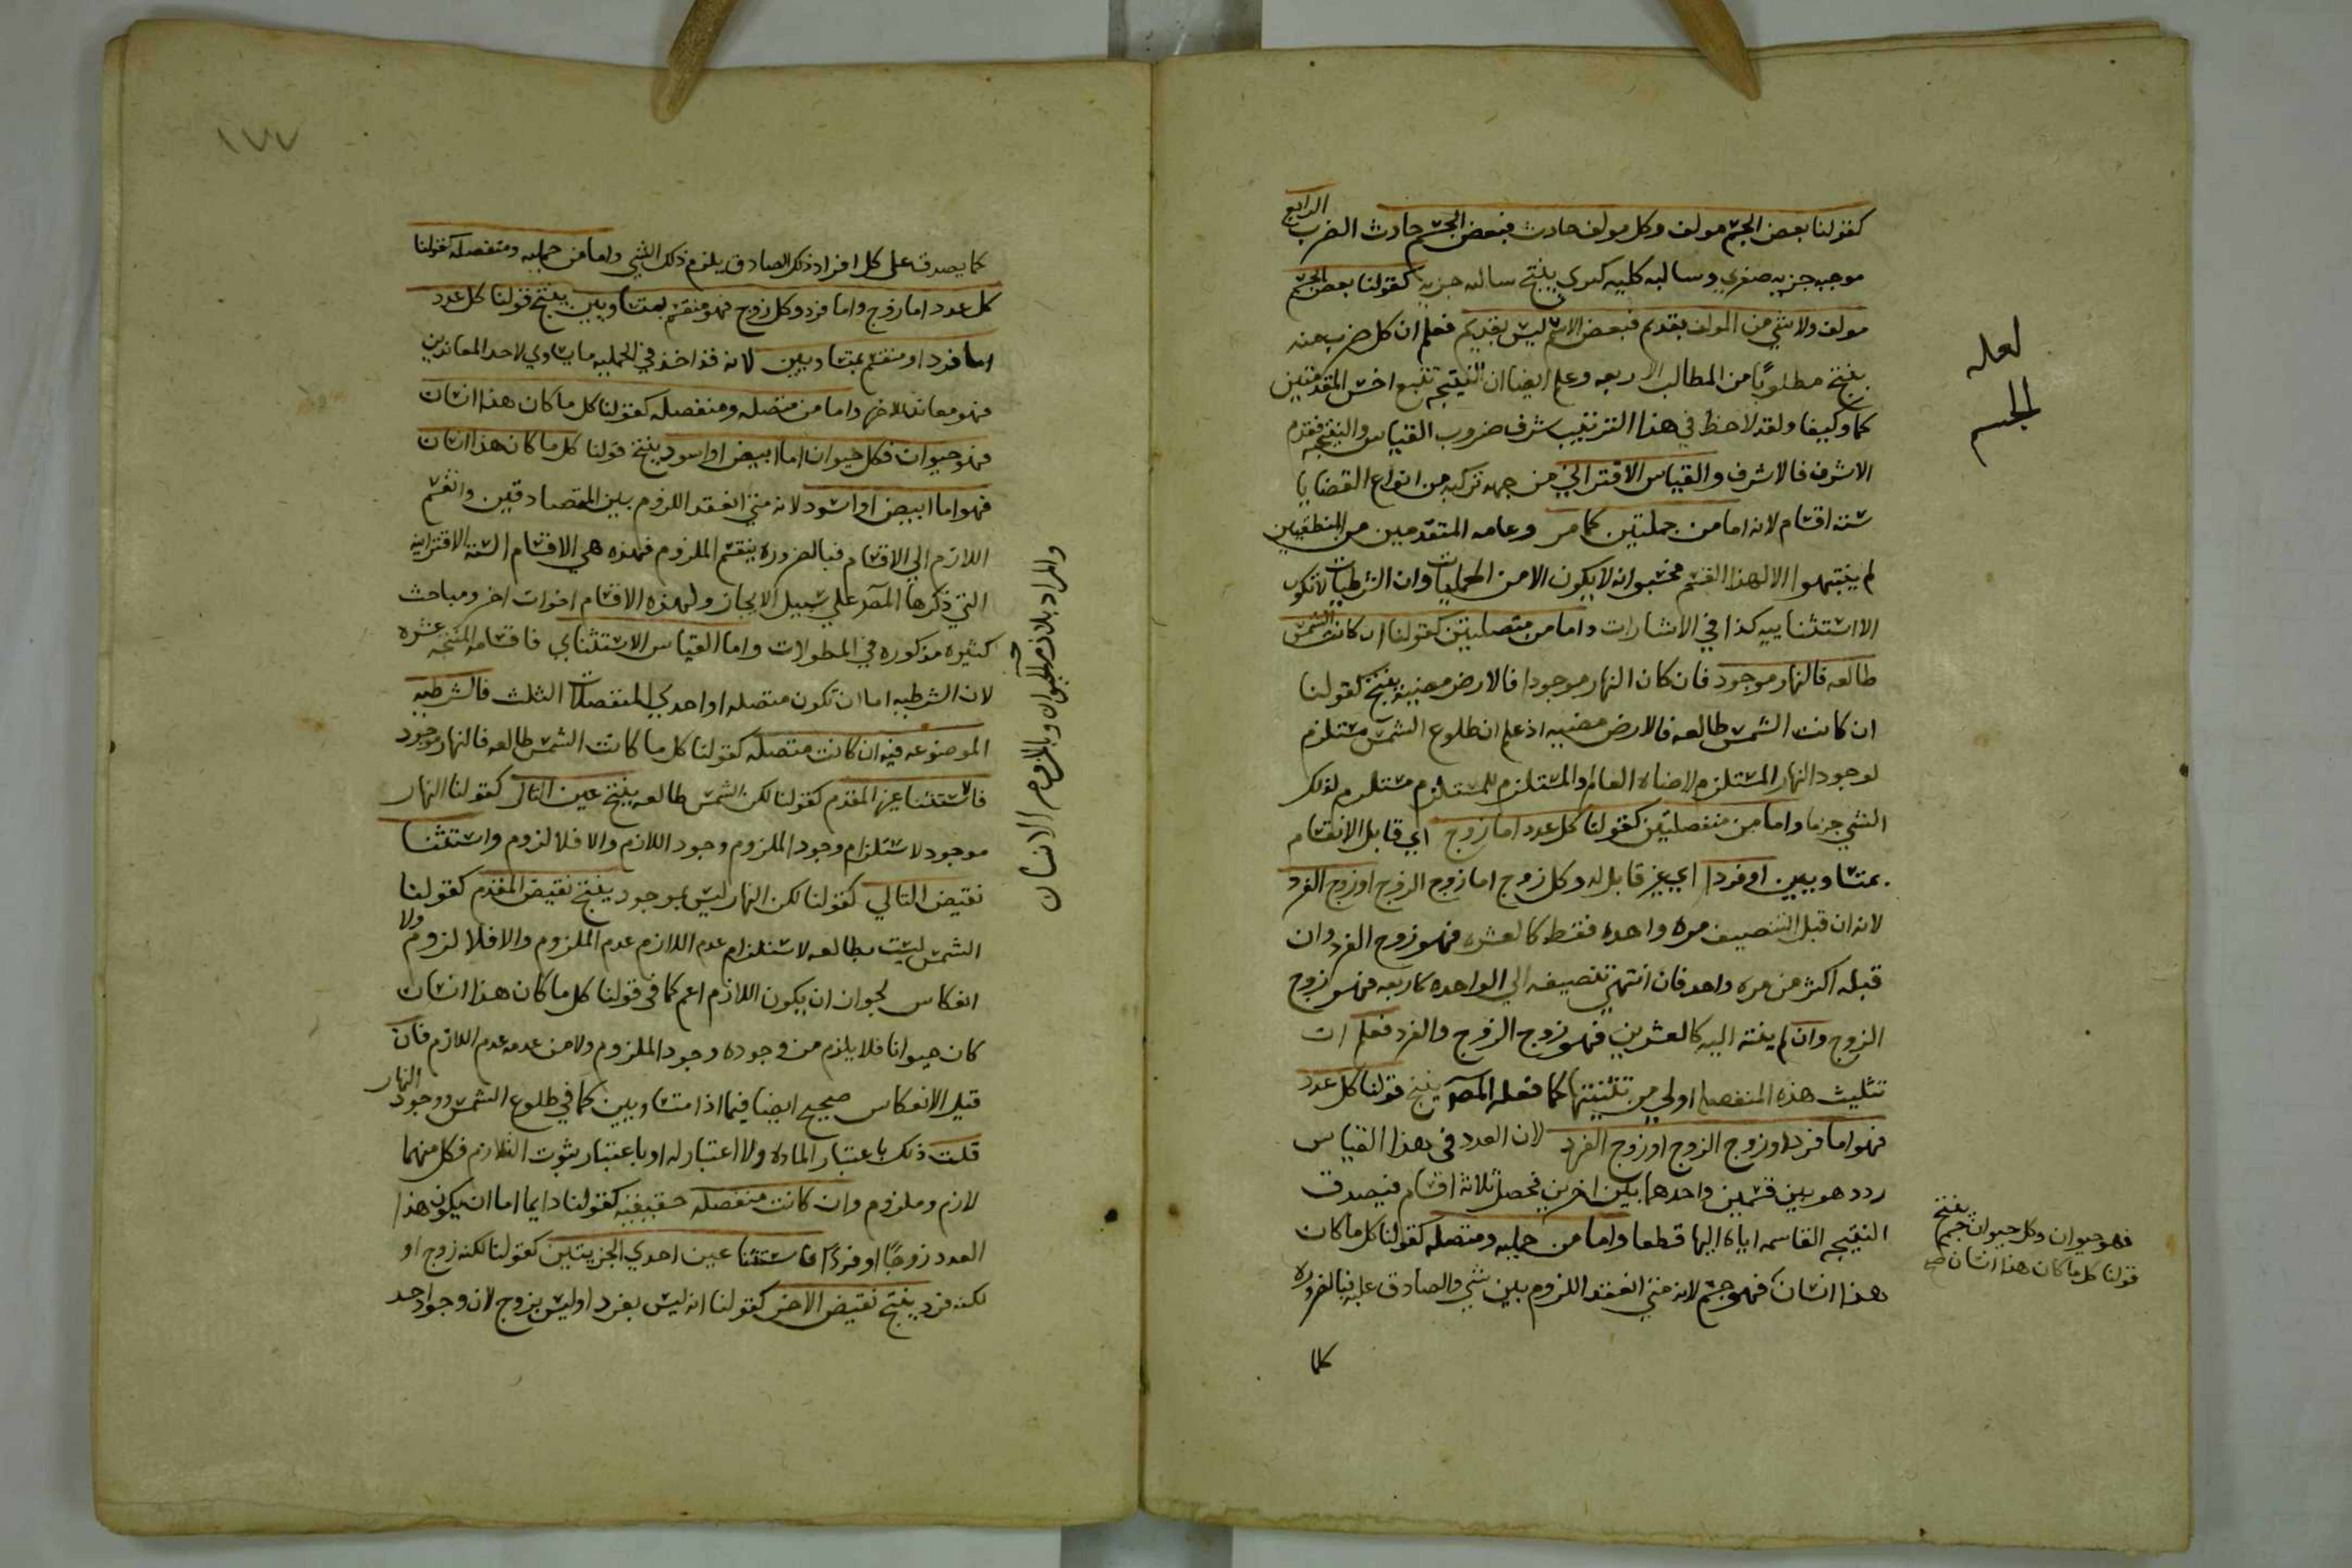 كقولنا بعض الجسم مولف وكل مولف حادث فبعض الجسم حادث الضرب الرابع
موجبه جزييه صغري وسالبه كليه كبري ينتج سالبه جزييه كقولنا بعض الجسم
مولف ولا شي من المولف بقديم فبعض الاسم ليس بقديم فعلم ان كل ضرب منه
ينتج مطلوبًا من المطالب الاربعه وعلم ايضا ان النتيجه تتبع اخس المقدمتين
كما وكيفا ولقد لاحظ في هذا الترتيب شرف ضروب القياس والنتيجه فقدم
الاشرف فالاشرف والقياس الاقتراني من جهه تركبه من انواع القضايا
سته اقسام لانه اما من جملتين كما مر وعامه المتقدمين من المنطقيين
لم ينتبهوا الا لهذا القسم فحسبوا انه لا يكون الا من الحمليات وان الشرطيات لا تكون
الا استثناييه كذا في الاشارات واما من متصلتين كقولنا ان كانت الشمس
طالعه فالنهار موجود فان كان النهار موجودا فالارض مضييه ينتج كقولنا
ان كانت الشمس طالعه فالارض مضييه اذ علم ان طلوع الشمس مستلزم
لوجود النهار المستلزم لاضاه العالم والمستلزم للمستلزم مستلزم لذلك
الشي جزما واما من منفصلتين كقولنا كل عدد اما زوج اي قابل الانقسام
بمتساويين او فرد اي غير قابل له وكل زوج اما زوج الزوج او زوج الفرد
لانه ان قبل التنصيف مره واحده فقط كالعشره فهو زوج الفرد وان
قبله اكثر من مره واحد فان انتهي تنصيفه الي الواحده كاربعه فهو زوج
الزوج وان لم ينته اليه كالعشرين فهو زوج الزوج والفرد فعلم ان
تثليث هذه المنفصله اولي من تثنيتها كما فعله المص ينتج قولنا كل عدد
فهو اما فرد او زوج الزوج او زوج الفرد لان العدد في هذا القياس
ردد هو بين قسمين واحدهما بين اخرين فحصل ثلاثه اقسام فيصدق
النتيجه القاسمه اياه اليها قطعا واما من حمليه ومتصله كقولنا كل ما كان
هذا انسان فهو جسم لانه متي انعقد اللزوم بين شي والصادق عليه فبالضروره
كلما
لعله
الجسم
فهو حيوان وكل حيوان جسم ينتج
قولنا كل ما كان هذا انسان صح
١٧٧
كما يصدق علي كل افراد ذلك الصادق يلزم ذلك الشي واما من حمليه ومنفصله كقولنا
كل عدد اما زوج واما فرد وكل زوج فهو منقسم بمتساويين ينتج قولنا كل عدد
اما فرد او منقسم بمتساويين لانه قد اخذ في الحمليه ما يساوي لاحد المعاندين
فهو معاند للاخر واما من متصله ومنفصله كقولنا كل ما كان هذا انسان
فهو حيوان فكل حيوان اما ابيض او اسود ينتج قولنا كل ما كان هذا انسان
فهو اما ابيض او اسود لانه متي انعقد اللزوم بين المتصادقين وانقسم
اللازم الي الاقسام فبالضروره ينقسم الملزوم فهذه هي الاقسام السته الاقترانيه
التي ذكرها المص علي سبيل الايجاز ولهذه الاقسام اخوات اخر ومباحث
كثيره مذكوره في المطولات واما القياس الاستثنايي فاقسامه المنتجه عشره
لان الشرطيه اما ان تكون متصله او احدي المنفصلات الثلث فالشرطيه
الموضوعه فيه ان كانت متصله كقولنا كل ما كانت الشمس طالعه فالنهار موجود
فاستثنا عين المقدم كقولنا لكن الشمس طالعه ينتج عين التال كقولنا النهار
موجود لاستلزام وجود الملزوم وجود اللازم والا فلا لزوم واستثنا
نقيض التالي كقولنا لكن النهار ليس بموجود ينتج نقيض المقدم كقولنا
الشمس ليست بطالعه لاستلزام عدم اللازم عدم الملزوم والا فلا لزوم ولا
انعكاس لجواز ان يكون اللازم اعم كما في قولنا كل ما كان هذا انسان
كان حيوانا فلا يلزم من وجوده وجود الملزوم ولا من عدمه عدم اللازم فان
قيل الانعكاس صحيح ايضا فيما اذا متساويين كما في طلوع الشمس ووجود النهار
قلت ذلك باعتبار الماده ولا اعتبار له او باعتبار ثبوت التلازم فكل منهما
لازم وملزوم وان كانت منفصله حقيقيه كقولنا دايما اما ان يكون هذا
العدد زوجًا او فردًا فاستثنا عين احدي الجزيتين كقولنا لكنه زوج او
لكنه فرد ينتج نقيض الاخر كقولنا انه ليس بفرد او ليس بزوج لان وجود احد
والمراد بلازم الحيوان وبالملزوم الانسان